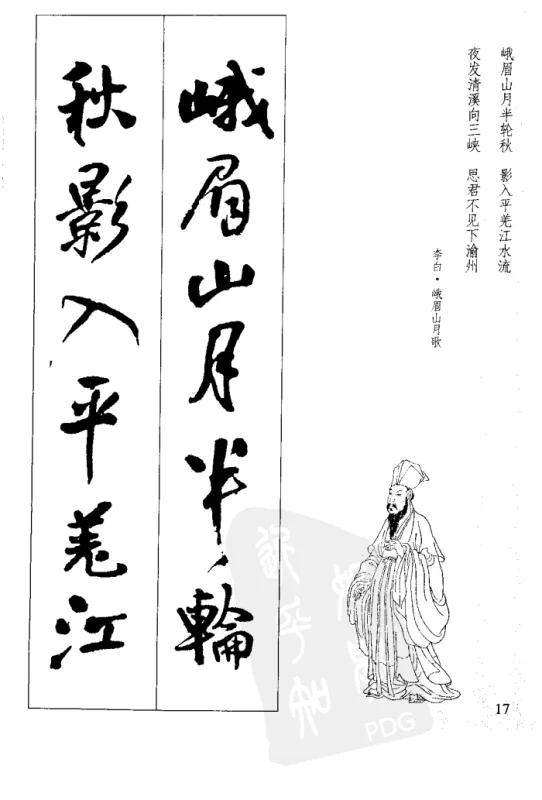 峨眉山月半轮秋 影入平羌江水流
夜发清溪向三峡 思君不见下渝州
李白·峨眉山月歌
峨眉山月半輪
秋影入平羌江
17
PDG